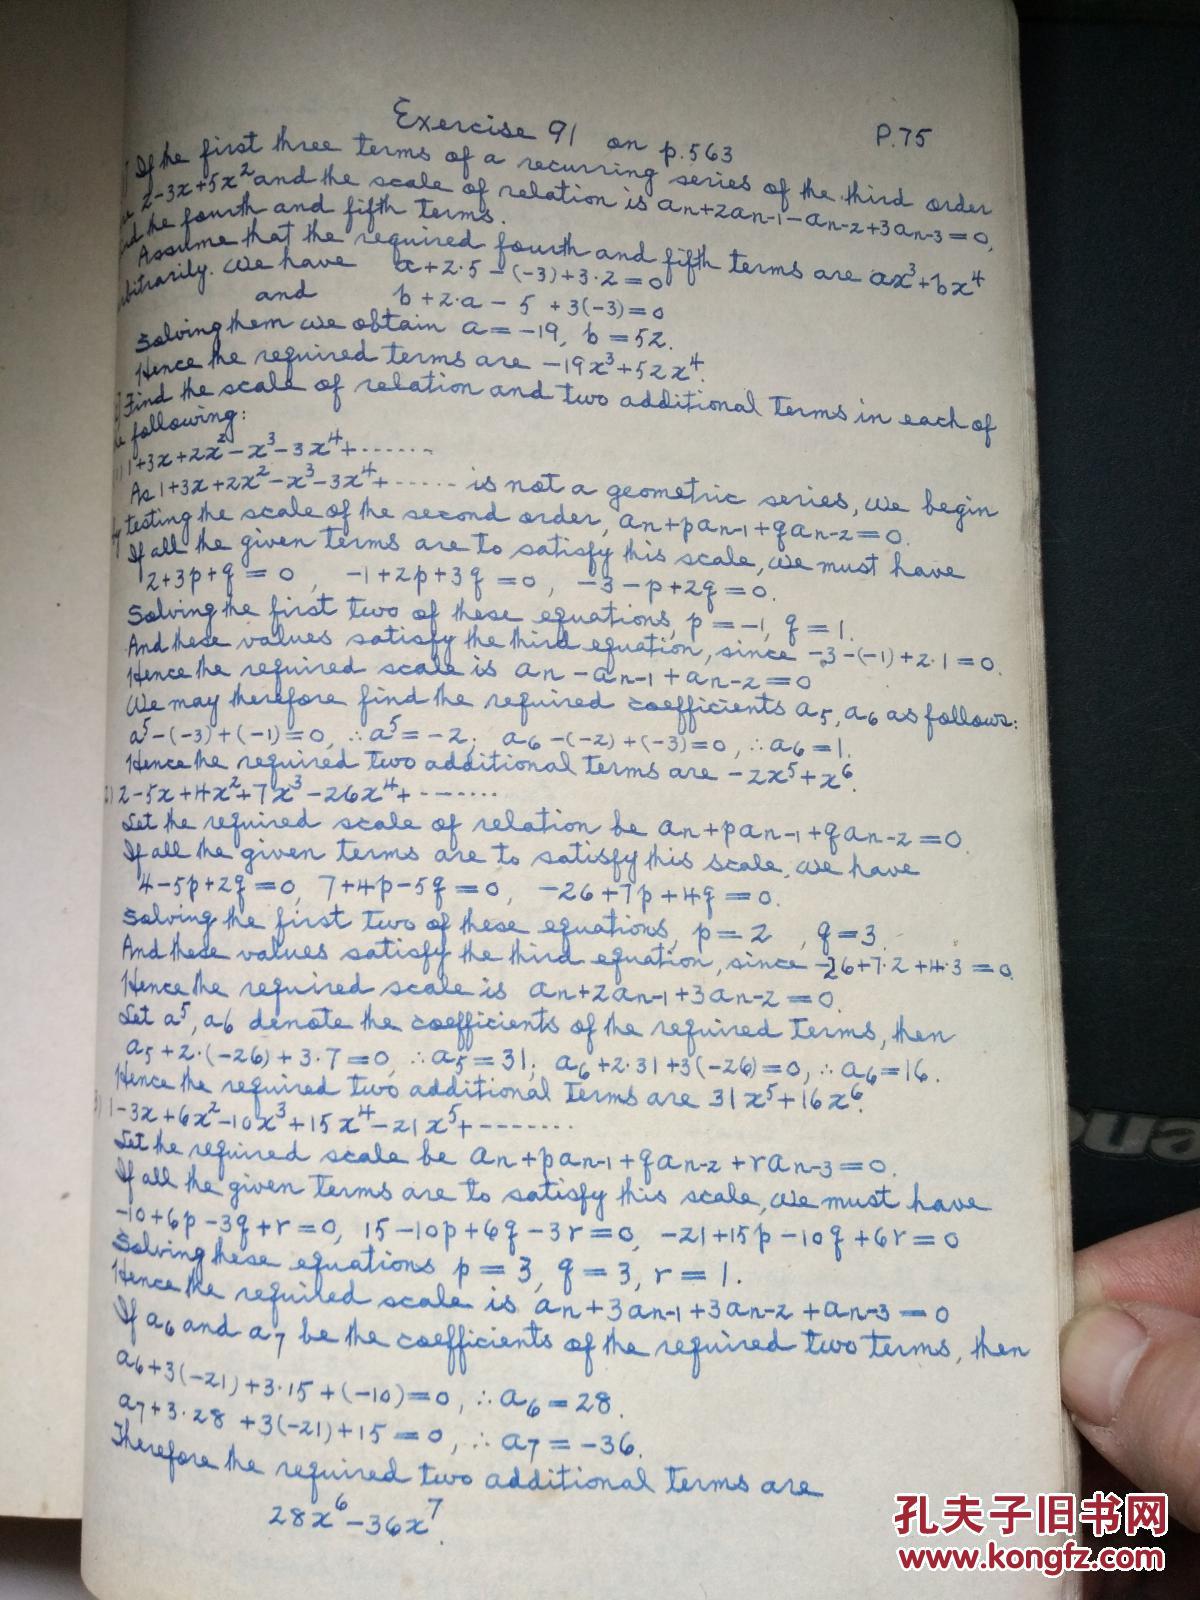 Exercise 91 on p.563 P.75
If the first three terms of a recurring series of the third order
2-3x+5x² and the scale of relation is aₙ+2aₙ₋₁-aₙ₋₂+3aₙ₋₃=0,
the fourth and fifth terms.
Assume that the required fourth and fifth terms are ax³+bx⁴
arbitrarily. We have a+2·5-(-3)+3·2=0
and b+2·a-5+3(-3)=0
Solving them we obtain a=-19, b=52.
Hence the required terms are -19x³+52x⁴.
Find the scale of relation and two additional terms in each of
the following:
1) 1+3x+2x²-x³-3x⁴+......
As 1+3x+2x²-x³-3x⁴+..... is not a geometric series, we begin
by testing the scale of the second order, aₙ+paₙ₋₁+qaₙ₋₂=0.
If all the given terms are to satisfy this scale, we must have
2+3p+q=0, -1+2p+3q=0, -3-p+2q=0.
Solving the first two of these equations, p=-1, q=1.
And these values satisfy the third equation, since -3-(-1)+2·1=0.
Hence the required scale is aₙ-aₙ₋₁+aₙ₋₂=0
We may therefore find the required coefficients a₅, a₆ as follows:
a⁵-(-3)+(-1)=0, ∴a⁵=-2; a₆-(-2)+(-3)=0, ∴a₆=1.
Hence the required two additional terms are -2x⁵+x⁶.
2) 2-5x+4x²+7x³-26x⁴+.......
Let the required scale of relation be aₙ+paₙ₋₁+qaₙ₋₂=0.
If all the given terms are to satisfy this scale, we have
4-5p+2q=0, 7+4p-5q=0, -26+7p+4q=0.
Solving the first two of these equations, p=2, q=3.
And these values satisfy the third equation, since -26+7·2+4·3=0.
Hence the required scale is aₙ+2aₙ₋₁+3aₙ₋₂=0.
Let a⁵, a₆ denote the coefficients of the required terms, then
a₅+2·(-26)+3·7=0, ∴a₅=31; a₆+2·31+3(-26)=0, ∴a₆=16.
Hence the required two additional terms are 31x⁵+16x⁶.
3) 1-3x+6x²-10x³+15x⁴-21x⁵+.......
Let the required scale be aₙ+paₙ₋₁+qaₙ₋₂+raₙ₋₃=0.
If all the given terms are to satisfy this scale, we must have
-10+6p-3q+r=0, 15-10p+6q-3r=0, -21+15p-10q+6r=0
Solving these equations p=3, q=3, r=1.
Hence the required scale is aₙ+3aₙ₋₁+3aₙ₋₂+aₙ₋₃=0
If a₆ and a₇ be the coefficients of the required two terms, then
a₆+3(-21)+3·15+(-10)=0, ∴a₆=28.
a₇+3·28+3(-21)+15=0, ∴a₇=-36.
Therefore the required two additional terms are
28x⁶-36x⁷.
孔夫子旧书网
www.kongfz.com